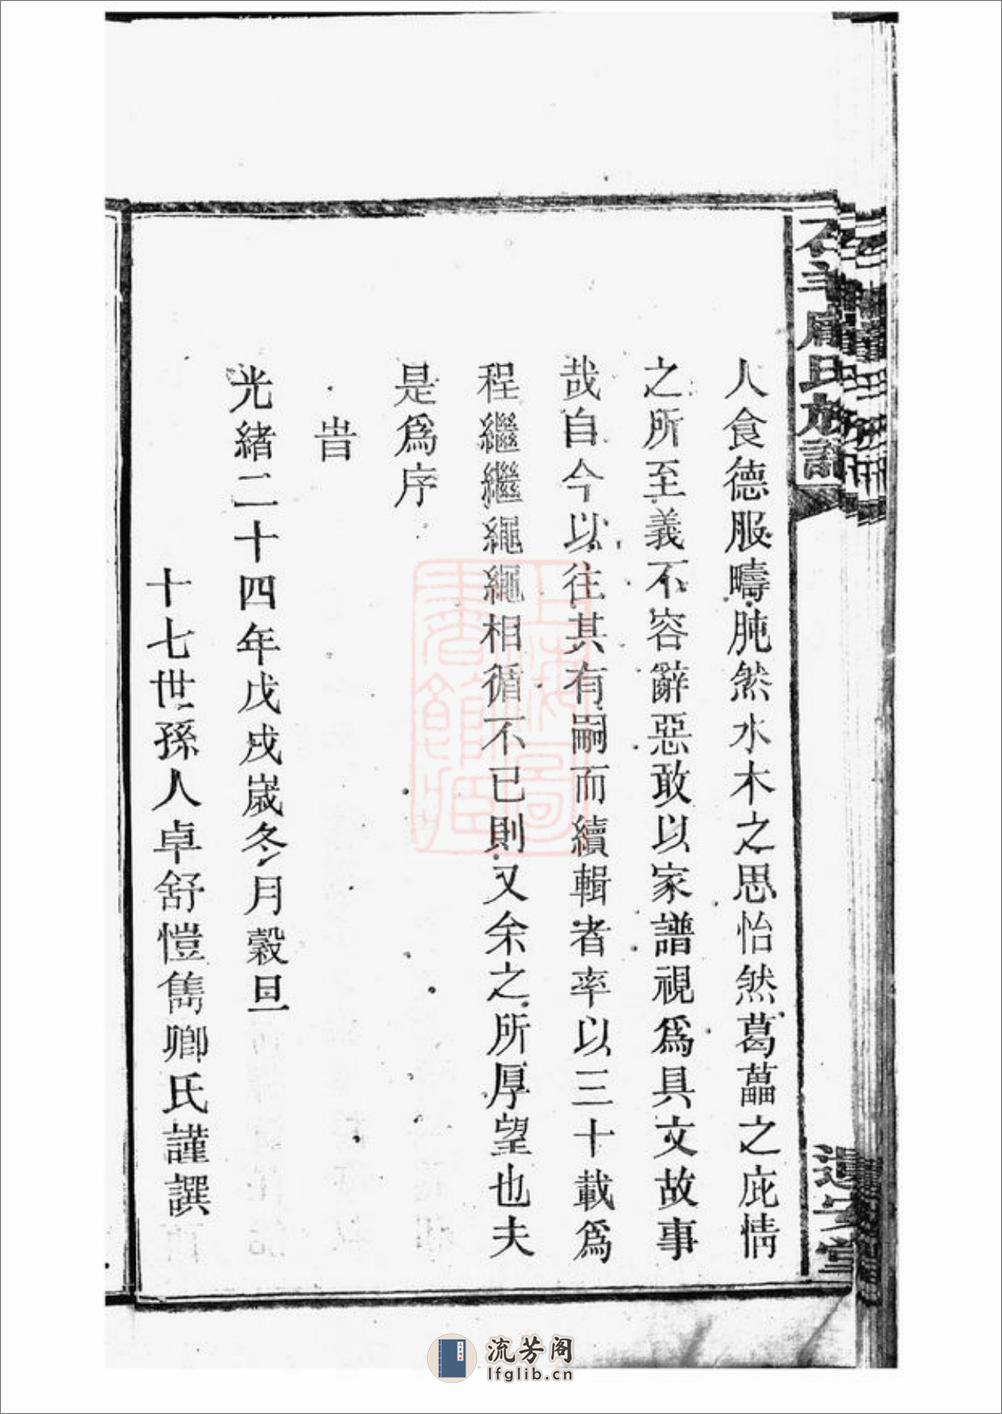 人食德服疇肫然水木之思怡然葛藟之庇情
之所至義不容辭惡敢以家譜視爲具文故事
哉自今以往其有嗣而續輯者率以三十載爲
程繼繼繼繩繩相循不已則又余之所厚望也夫
是爲序
旹
光緒二十四年戊戌嵗冬月穀旦
十七世孫人卓舒愷雋卿氏謹譔
氏族譜
遺安堂
上海圖書館藏
流芳阁
lfglib.cn